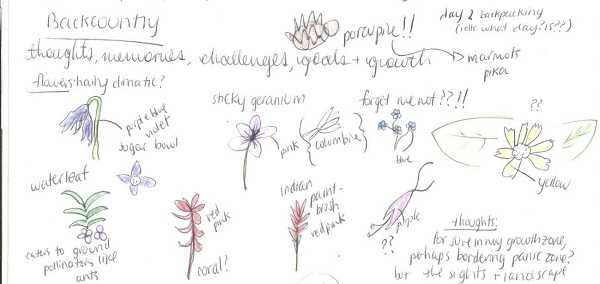 Backcountry
porcupine!!
day 2 backpacking
thoughts, memories, challenges, goals + growth
marmots
pika
flowers: hairy clematis?
purple blue
violet
sugar bowl
sticky geranium
pink
(columbine)
forget me not??!!
blue
??
yellow
waterleaf
caters to ground
pollinators like
ants
red
pink
coral?
indian
paint-
brush
red pink
purple
??
thoughts:
for sure in my growth zone,
perhaps bordering panic zone?
but the sights + landscape